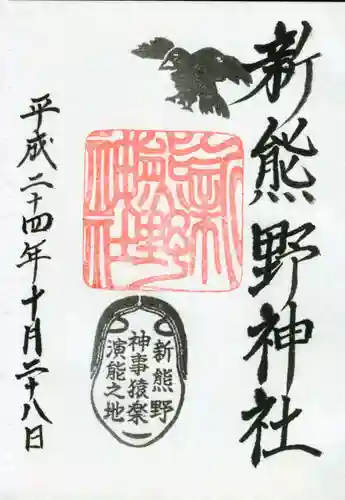 新熊野神社
新熊野神社
新熊野
神事猿楽
演能之地
平成二十四年十月二十八日